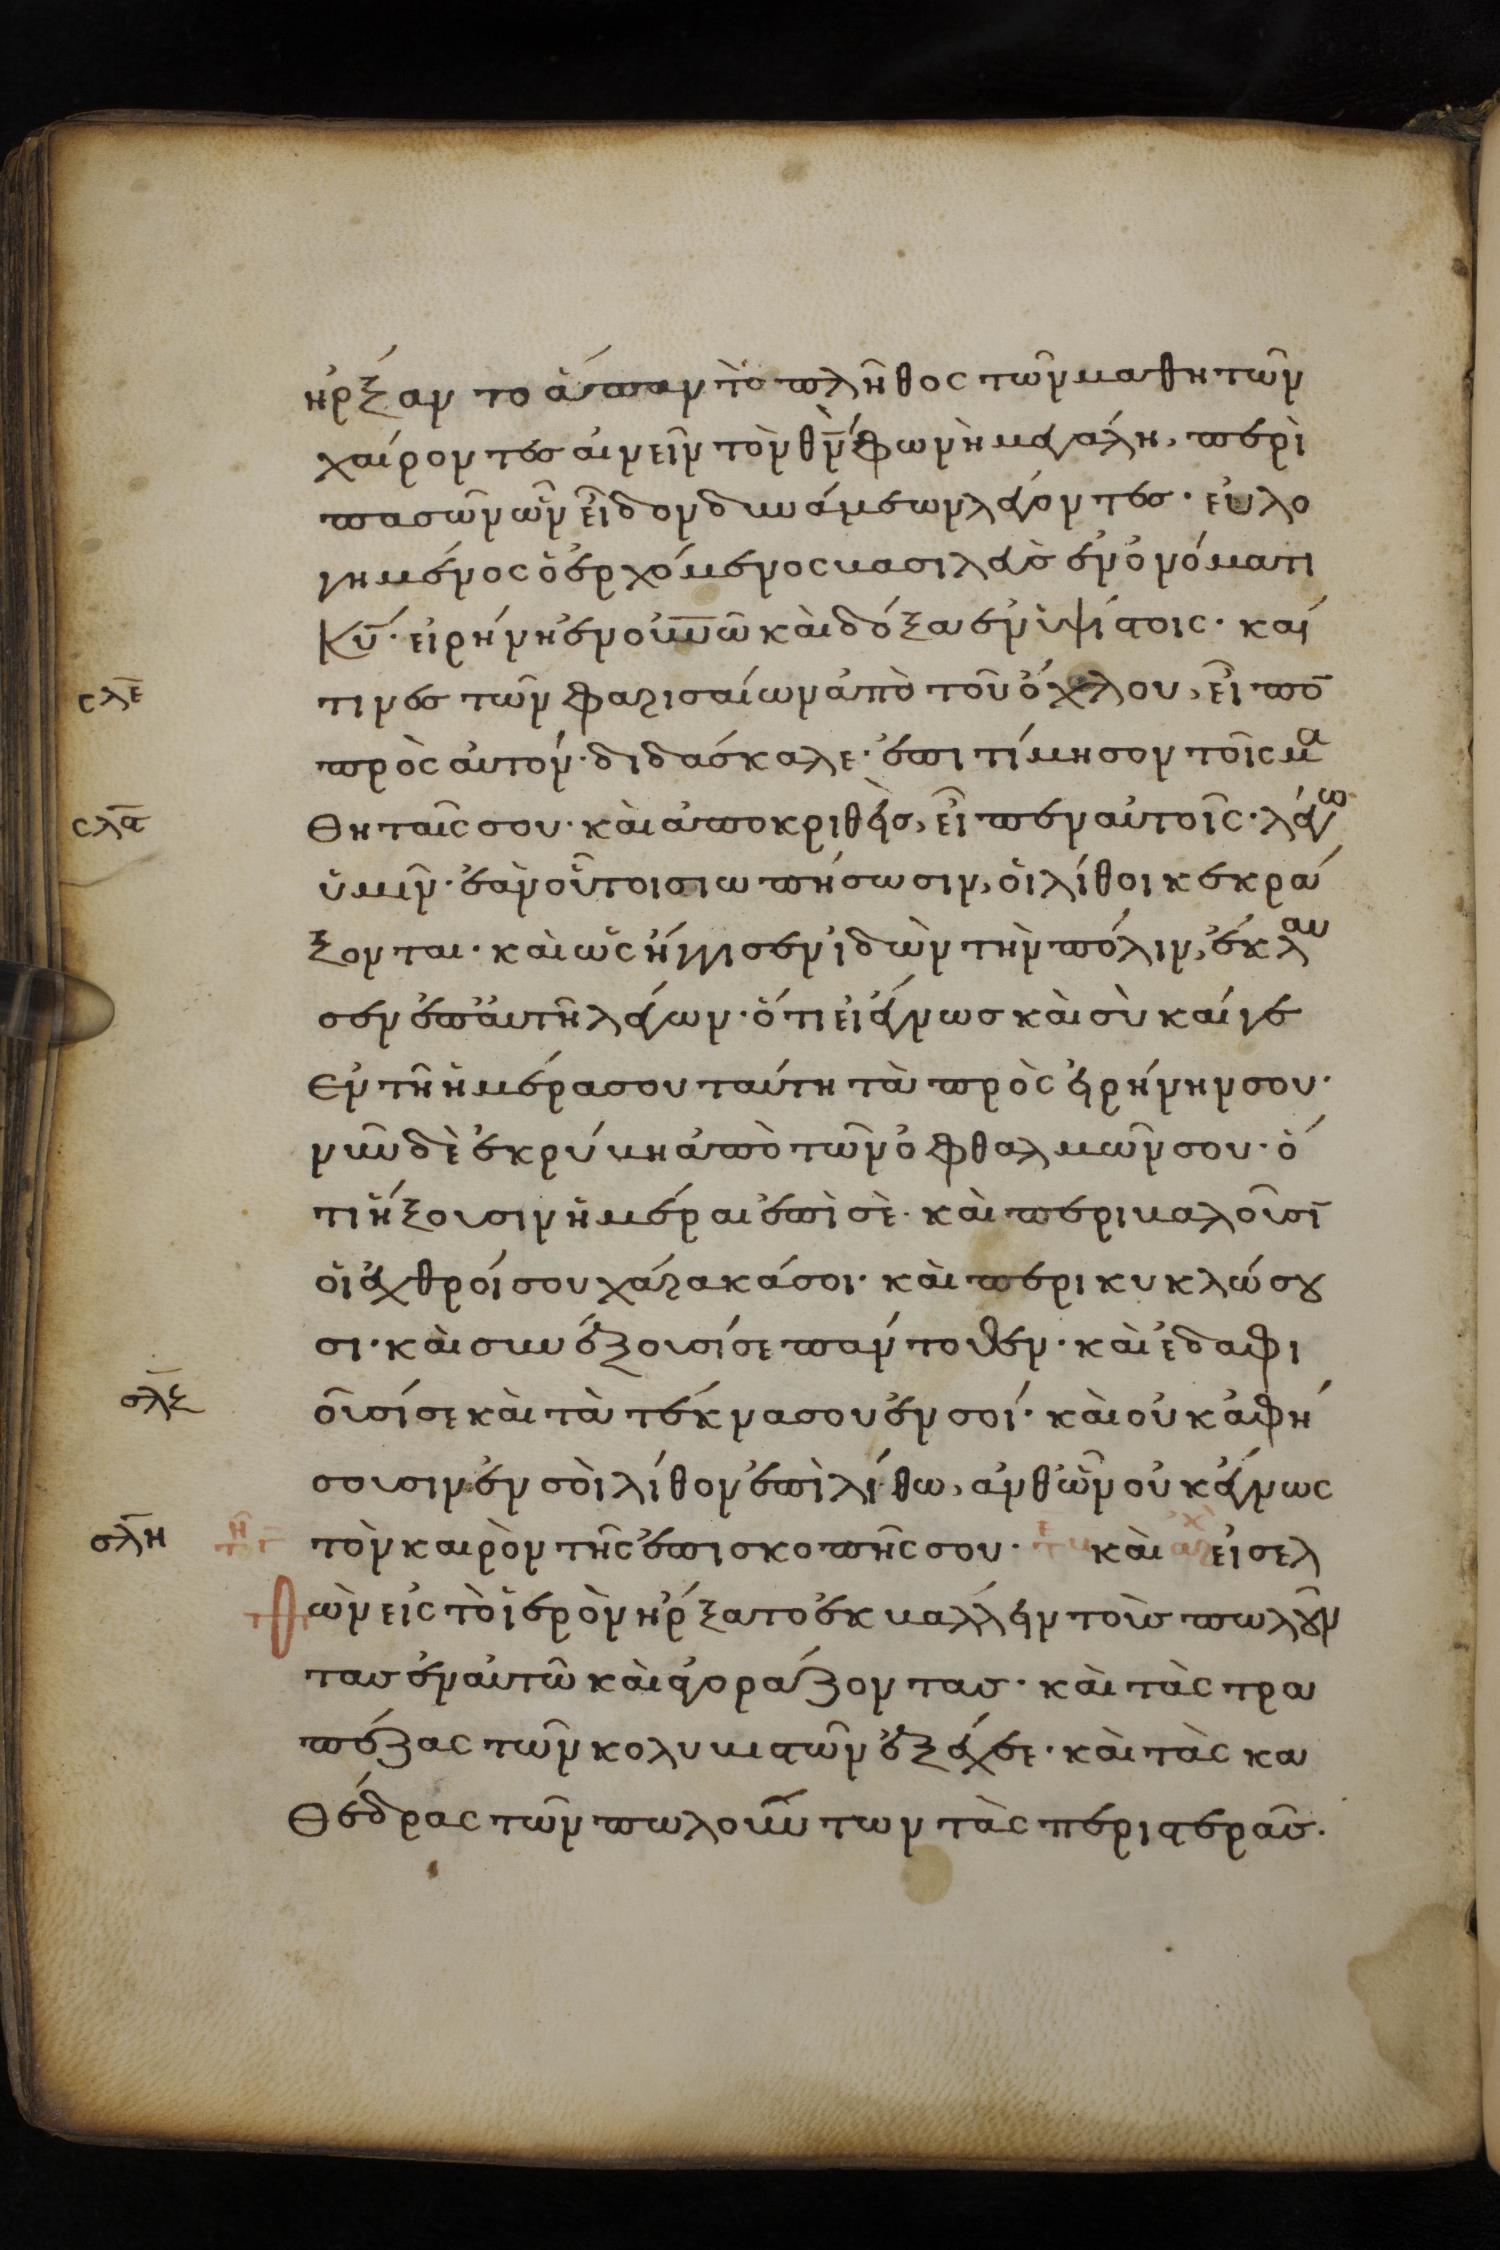 ἤρξαντο ἅπαν τὸ πλῆθος τῶν μαθητῶν
χαίροντες αἰνεῖν τὸν θ̅ν̅ φωνὴ μεγάλη, περὶ
πασῶν ὧν εἶδον δυνάμεων λέγοντες· εὐλο
γημένος ὁ ἐρχόμενος βασιλεὺς ἐν ὀνόματι
κ̅υ̅· εἰρήνη ἐν οὐνῶ καὶ δόξα ἐν ὑψίστοις· καί
σλε τινες τῶν φαρισαίων ἀπὸ τοῦ ὄχλου, εἶπο̅
πρὸς αὐτόν· διδάσκαλε· ἐπιτίμησον τοῖς μα
σλϛ θηταῖς σου· καὶ ἀποκριθεὶς, εἶπεν αὐτοῖς· λέγω
ὑμῖν· ἐὰν οὗτοι σιωπήσωσιν, οἱ λίθοι κεκρά
ξονται· καὶ ὡς ἤγγισεν ἰδὼν τὴν πόλιν, ἔκλαυ
σεν ἐπ' αὐτῆ λέγων· ὅτι εἰ ἔγνως καὶ σὺ καί γε
ἐν τῆ ἡμέρα σου ταύτη τὰ πρὸς εἰρήνην σου·
νῦν δὲ ἐκρύβη ἀπὸ τῶν ὀφθαλμῶν σου· ὅ
τι ἥξουσιν ἡμέραι ἐπὶ σὲ· καὶ περιβαλοῦσι̅
οἱ ἐχθροί σου χάρακά σοι· καὶ περικυκλώσου
σι· καὶ συνέξουσί σε πάντοθεν· καὶ ἐδαφι
σλζ οῦσί σε καὶ τὰ τέκνα σου ἐν σοί· καὶ οὐκ ἀφή
σουσιν ἐν σοὶ λίθον ἐπὶ λίθω, ἀνθ' ὧν οὐκ ἔγνως
σλη τὸν καιρὸν τῆς ἐπισκοπῆς σου· καὶ εἰσελ
θὼν εἰς τὸ ἱερὸν ἤρξατο ἐκβάλλειν τοὺς πωλοῦν
τας ἐν αὐτῶ καὶ ἀγοράζοντας· καὶ τὰς τρα
πέζας τῶν κολυβιστῶν ἐξέχεε· καὶ τὰς κα
θέδρας τῶν πωλούντων τὰς περιστεράς·